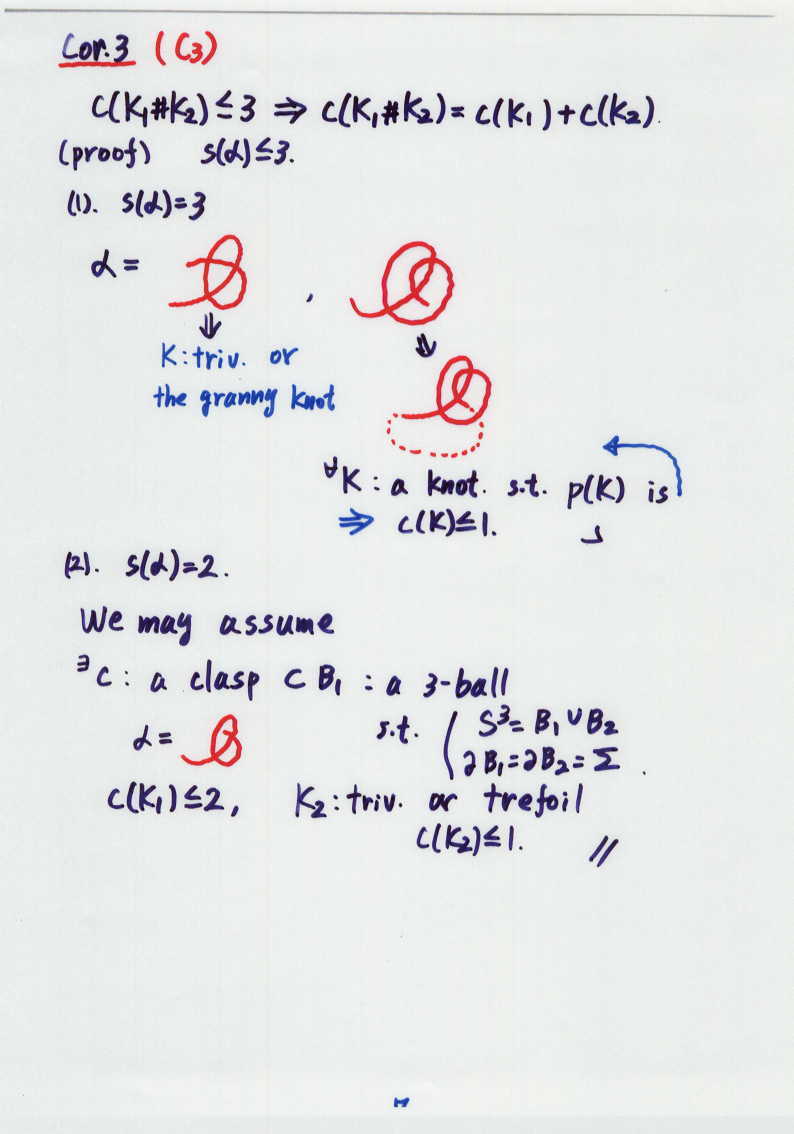 Cor.3 (C₃)
c(K₁#K₂)≤3 ⇒ c(K₁#K₂)=c(K₁)+c(K₂).
(proof) s(α)≤3.
(1). s(α)=3
α= ,
⇓ ⇓
K:triv. or
the granny knot
∀K: a knot. s.t. p(K) is
⇒ c(K)≤1.
(2). s(α)=2.
We may assume
∃c: a clasp ⊂ B₁ : a 3-ball
α= s.t. ( S³=B₁∪B₂
∂B₁=∂B₂=Σ .
c(K₁)≤2, K₂:triv. or trefoil
c(K₂)≤1. //